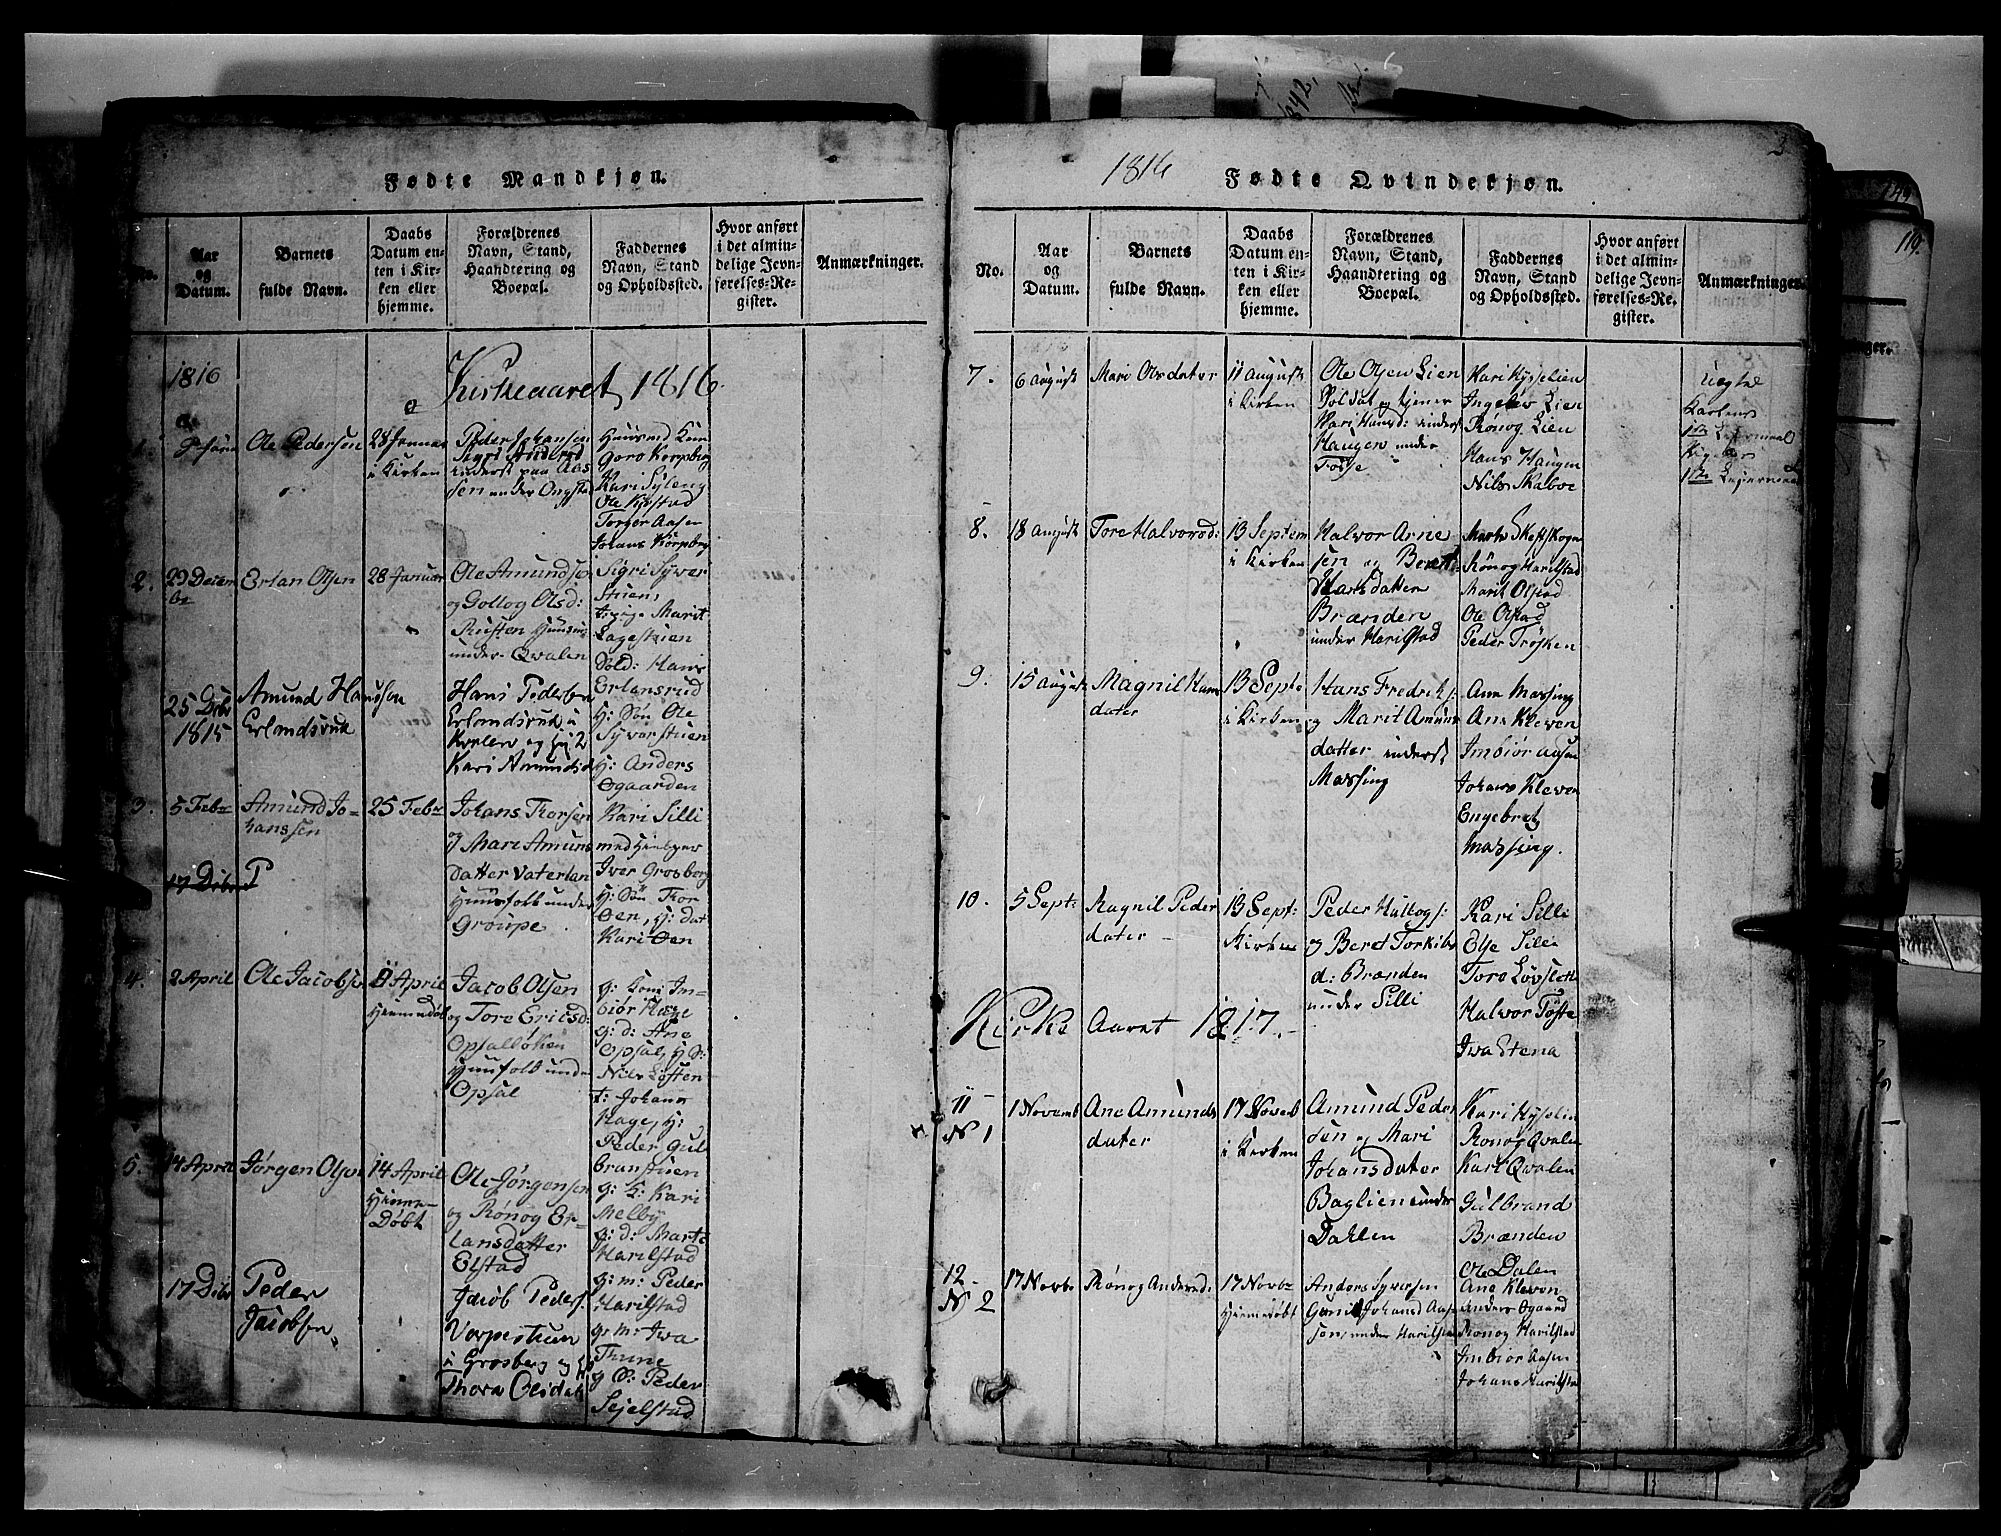 Fødte Mandkjøn.
No.
Aar
og
Datum.
Barnets
fulde Navn.
Daabs
Datum en-
ten i Kir-
ken eller
hjemme.
Forældrenes
Navn, Stand,
Haandtering og
Boepæl.
Faddernes
Navn, Stand
og Opholdssted.
Hvor anført
i det almin-
delige Jevn-
førelses-Re-
gister.
Anmærkninger.
1816
Kirkeaaret 1816.
1.
Ole Pedersen
28 Jennar
i Kirken
Peder Johansen
Sigri Andersd
inderst paa Aas
sen under Ongstad
Huusmd
Goro Korpberg
Kari Syleng
Ole Kirstad
Torger Aasen
Johans Korpberg
2.
29 Decem
br
Erlan Olsen
28 Januar
Ole Amundsen
og Gollog Olsd:
Rusten Huusm
under Qvalen
Sigri Syver
Stuen,
Marit
Lageskien
Sold: Hans
Erlansrud
H: Søn Ole
Syverstuen
H: Anders
Øgaarden
25 Dbr
1815
Amund Hansson
Erlandsrud
Hans Peders
Erlandsrud u
Kvalen og
Kari Amundsd
3.
5 Febr
Amund Jo-
hanssen
25 Febr
Johans Thorsen
og Mari Amuns
datter Vaterlan
Huusfolk under
Groupe
Kari Silli
med Hielper
Iver Grosberg
H: Søn Tor
Øen, H: dat
Kari Øen
17 Dbr P
4.
2 April
Ole Jacobsen
8 April
Hiemmedøbt
Jacob Olsen
og Tore Ericsd:
Opsalløken
Huusfolk unde
Opsal
g: Koni Im-
biør Hage
g: d: Ane
Opsal, H S:
Nils Løften
t: Johans
Hage, H:
Peder Gul
branstuen
5.
14 April
Jørgen Olsen
14 April
Hiemme-
Døbt
Ole Jørgensen
og Rønog Er-
lansdatter
Elstad
g: K: Kari
Melby
g: d: Marte
Harilstad
g: m: Peder
Harilstad
g: m: Iwa
Thune
g S: Peder
Sejelstad
17 Dbr
Peder
Jacobsen
Jacob Peders:
Vorpestuen
u Grosberg og
Thora Olsdat
1816
3
Fødte Qvindekjøn.
No.
Aar
og
Datum.
Barnets
fulde Navn.
Daabs
Datum en-
ten i Kir-
ken eller
hjemme.
Forældrenes
Navn, Stand,
Haandtering og
Boepæl.
Faddernes
Navn, Stand
og Opholdssted.
Hvor anført
i det almin-
delige Jevn-
førelses-Re-
gister.
Anmærkninger.
7.
6 August
Mari Olsdater
11 August
i Kirken
Ole Olsen Lien
Soldat og tjener
Kari Hansd: inderst
Haugen under
Fosse
Kari Kysselien
Ingebor Lien
Rønog Lien
Hans Haugen
Nils Skaboe
Uegte
Karlens
1ste Lejermaal
Pigens
1ste Lejermaal
8.
18 August
Tore Halvorsd:
13 Septem
i Kirken
Halvor Arne
sen og Beret
Hansdatter
Brænden
under Harilstad
Marte Skefskogn
Rönog Harilstad
Marit Olstad
Ole Olstad
Peder Trosken
9.
15 August
Magnil Hans
dater
13 Septe
i Kirken
Hans Fredriks:
og Marit Amun
datter inderst
Massing
Ane Massing
Ane Kleven
Imbiör Aasen
Johans Kleven
Engebret
Massing.
10.
5 Sept:
Magnil Peder
dater
13 Sept:
Kirken
Peder Huttogs:
og Beret Torkils
d: Brænden
under Silli
Kari Silli
Else Silli
Tore Løvslett
Halvor Tofte
Iwa Stena
Kirke Aaret 1817.
11
N 1
1 Novemb
Ane Amunds
dater
17 Noverb
i Kirken
Amund Peder
sen og Mari
Johansdater
Baglien under
Dahlen
Kari Kysselin
Ronog Qvalen
Kari Qvalen
Gulbrand
Brænden
Ole Dalen
12
N 2
17 Novbr
Rønog Andersd:
17 Novbr
Hiemmedøbt
Anders Syversen
Gunil Johansd Aas
sen, under Harilsta
Ane Kleven
Anders Øgaard
Ronog Harilstad
Imbiør Aasen
Johans Harilstad
119.